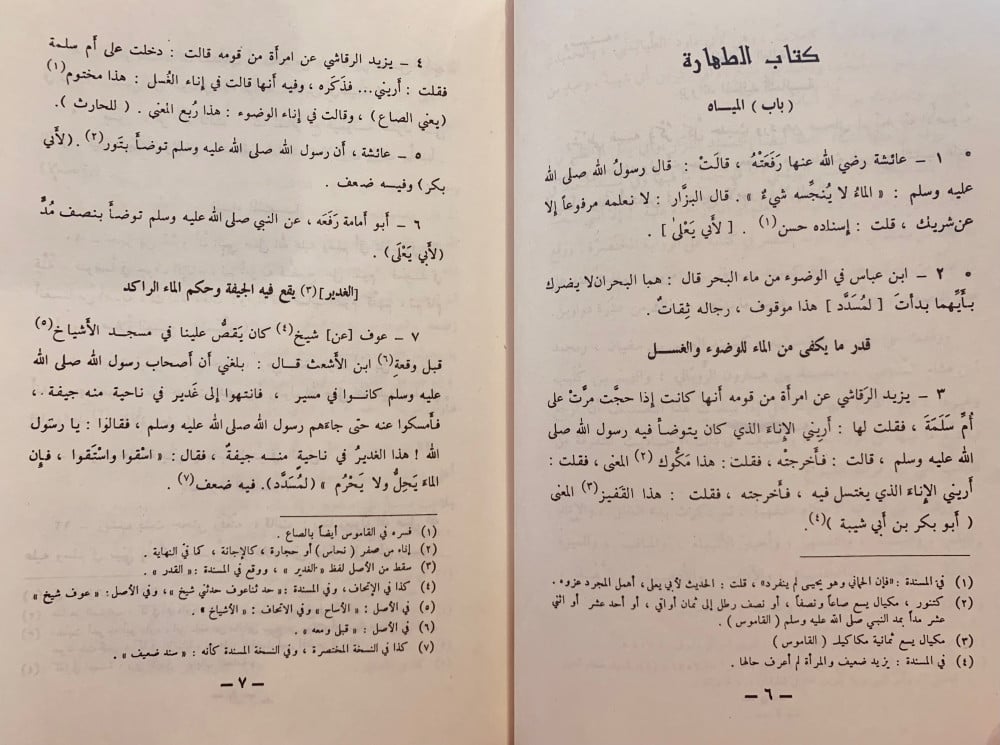 كتاب الطهارة
( باب ) الميـــاه
° ١ – عائشة رضي الله عنها رَفَعَتْهُ ، قالَتْ : قال رسولُ الله صلى الله
عليه وسلم : « الماءُ لا يُنجِّسه شيءُ » . قال البزَّار : لا نعلمه مرفوعاً إلا
عن شريك ، قلت : إسناده حسن (١) . [ لأبي يَعْلىٰ ] .
° ٢ – ابن عباس في الوضوء من ماء البحر قال : هما البحران لا يضرك
بأَيِّهما بدأتَ [ لمُسَدَّد ] هذا موقوف ، رجاله ثِقاتٌ .
قدر ما يكفى من الماء للوضوء والغســل
٣ – يزيد الرَقاشي عن امرأة من قومه أنها كانت إذا حجَّت مرَّتْ على
أُمِّ سَلَمَةَ ، فقلت لها : أَرِيني الإِناءَ الذي كان يتوضأ فيه رسول الله صلى
الله عليه وسلم ، قالت : فـأخرجتْه ، فقلت : هذا مَكُّوك (٢) المعنى ، فقلت :
أريني الإناءَ الذي يغتسل فيه ، فـأخرجته ، فقلت : هذا القَفيز (٣) المعنى
( أبو بكر بن أبي شيبة ) (٤) .
(١) في المسندة : «فإن الحماني وهو يحيى لم ينفرد» ، قلت : الحديث لأبي يعلى ، أهمل المجرد عزوه .
(٢) كتنور ، مكيال يسع صاعاً ونصفاً ، أو نصف رطل إلى ثمان أواقي ، أو أحد عشر أو اثني
عشر مداً بمد النبي صلى الله عليه وسلم ( القاموس ) .
(٣) مكيال يسع ثمانية مكاكيك ( القاموس )
(٤) في المسندة : يزيد ضعيف والمرأة لم أعرف حالها .
– ٦ –
٤ – يزيد الرقاشي عن امرأة من قومه قالت : دخلت على أم سلمة
فقلت : أريني... فذَكَره ، وفيه أنها قالت في إناء الغُسل : هذا مختوم (١)
(يعني الصاع) ، وقالت في إناء الوضوء : هذا رُبع المعنى . ( للحارث ) .
٥ – عائشة ، أن رسول الله صلى الله عليه وسلم توضأ بتَور (٢) . (لأبي
بكر) وفيـه ضعف .
٦ – أبو أمامة رَفَعَه ، عن النبي صلى الله عليه وسلم توضأَ بنصف مُدٍّ
(لأبي يَعْلَى) .
[الغدير] (٣) يقع فيه الجيفة وحكم الماء الراكد
٧ – عوف [عن] شيخ (٤) كان يَقصُّ علينا في مسجد الأَشياخ (٥)
قبل وقعة (٦) ابن الأَشعث قـال : بلغني أن أصحاب رسول الله صلى الله
عليه وسلم كانـوا في مسير ، فانتهوا إلى غَدير في ناحية منه جيفة ،
فـأمسكوا عنه حتى جاءهم رسول الله صلى الله عليه وسلم ، فقالوا : يا رسول
الله ! هذا الغديرُ في ناحيةٍ منـه جيفةٌ ، فقال : « اسْقوا واسْتَقوا ، فـإن
الماءَ يَحِلُّ ولا يَحْرُم » (لمُسَدَّد). فيه ضعف (٧) .
(١) فسره في القاموس أيضاً بالصاع .
(٢) إناء من صفر (نحاس) أو حجارة ، كالإجانة ، كما في النهاية .
(٣) سقط من الأصل لفظ «الغدير» ، ووقع في المسندة : « القدر » .
(٤) كذا في الإتحاف، وفي المسندة : « حد ثنا عوف حدثني شيخ » ، وفي الأصل : « عوف شيخ »
(٥) في الأصل : « الأساح » وفي الاتحاف : « الأشياخ » .
(٦) في الأصل : « قبل ومعه » .
(٧) كذا في النسخة المختصرة ، وفي النسخة المسندة كأنه : « سند ضعيف » .
– ٧ –